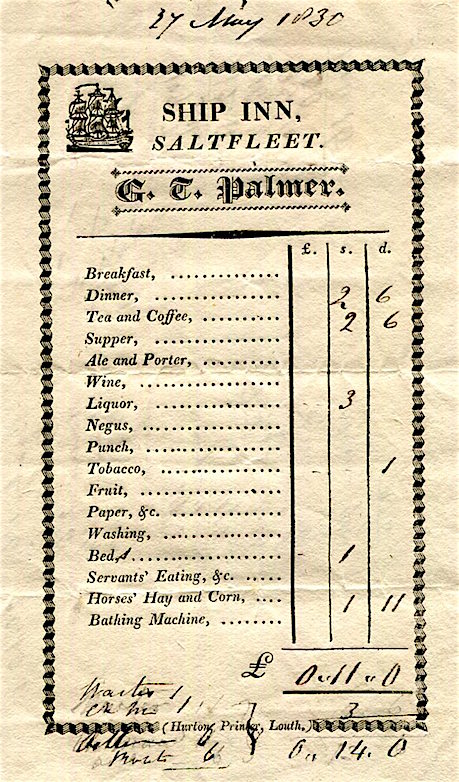 27 May 1830
SHIP INN,
SALTFLEET.
G. T. Palmer.
£. s. d.
Breakfast, ..............
Dinner, .............. 2 6
Tea and Coffee, ......... 2 6
Supper, ..............
Ale and Porter, .........
Wine, ................
Liquor, .............. 3
Negus, ................
Punch, ...............
Tobacco, ............. 1
Fruit, ................
Paper, &c. ............
Washing, .............
Beds ................. 1
Servants' Eating, &c. .....
Horses' Hay and Corn, .... 1 11
Bathing Machine, ........
£ 0 " 11 " 0
Waiter 1
3
(Hurton, Printer, Louth.)
6
Boots 6
0 " 14 . 0